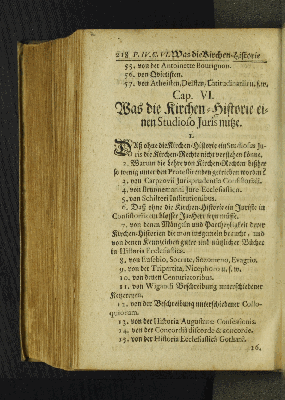 218 P. IV. C. VI. Was die Kirchen-Historie
55. von der Antoinette Bourignon.
56. von Qvietisten.
57. von Atheisten, Deisten, Latitudinariis u. s. w.
Cap. VI.
Was die Kirchen-Historie ei-
nen Studioso Juris nutze.
1.
Daß ohne die Kirchen-Historie ein Studiosus Ju-
ris die Kirchen-Rechte nicht verstehen könne.
2. Warum die Lehre von Kirchen-Rechten bißher
so wenig unter den Protestirenden getrieben worden?
3. von Carpzovii Jurisprudentia Consistoriali.
4. von Brunnemanni Jure Ecclesiastico.
5. von Schilteri Institutionibus.
6. Daß ohne die Kirchen-Historie ein Juriste in
Consistoriis ein blosser Ja-Herr seyn müsse.
7. von denen Mängeln und Partheyligkeit derer
Kirche-Historien die man insgemein brauchet, und
von denen Kennzeichen guter und nützlicher Bücher
in Historia Ecclesiastica.
8. von Eusebio, Socrate, Sozomeno, Evagrio.
9. von der Tripartita, Nicephoro u. s. w.
10. von denen Centuriatoribus.
11. von Wigandi Beschreibung unterschiedener
Ketzereyen.
12. von der Beschreibung unterschiedener Collo-
quiorum.
13. von der Historia Augustanæ Confessionis.
14. von der Concordia discorde & concorde.
15. von der Historia Ecclesiastica Gothana.
16.